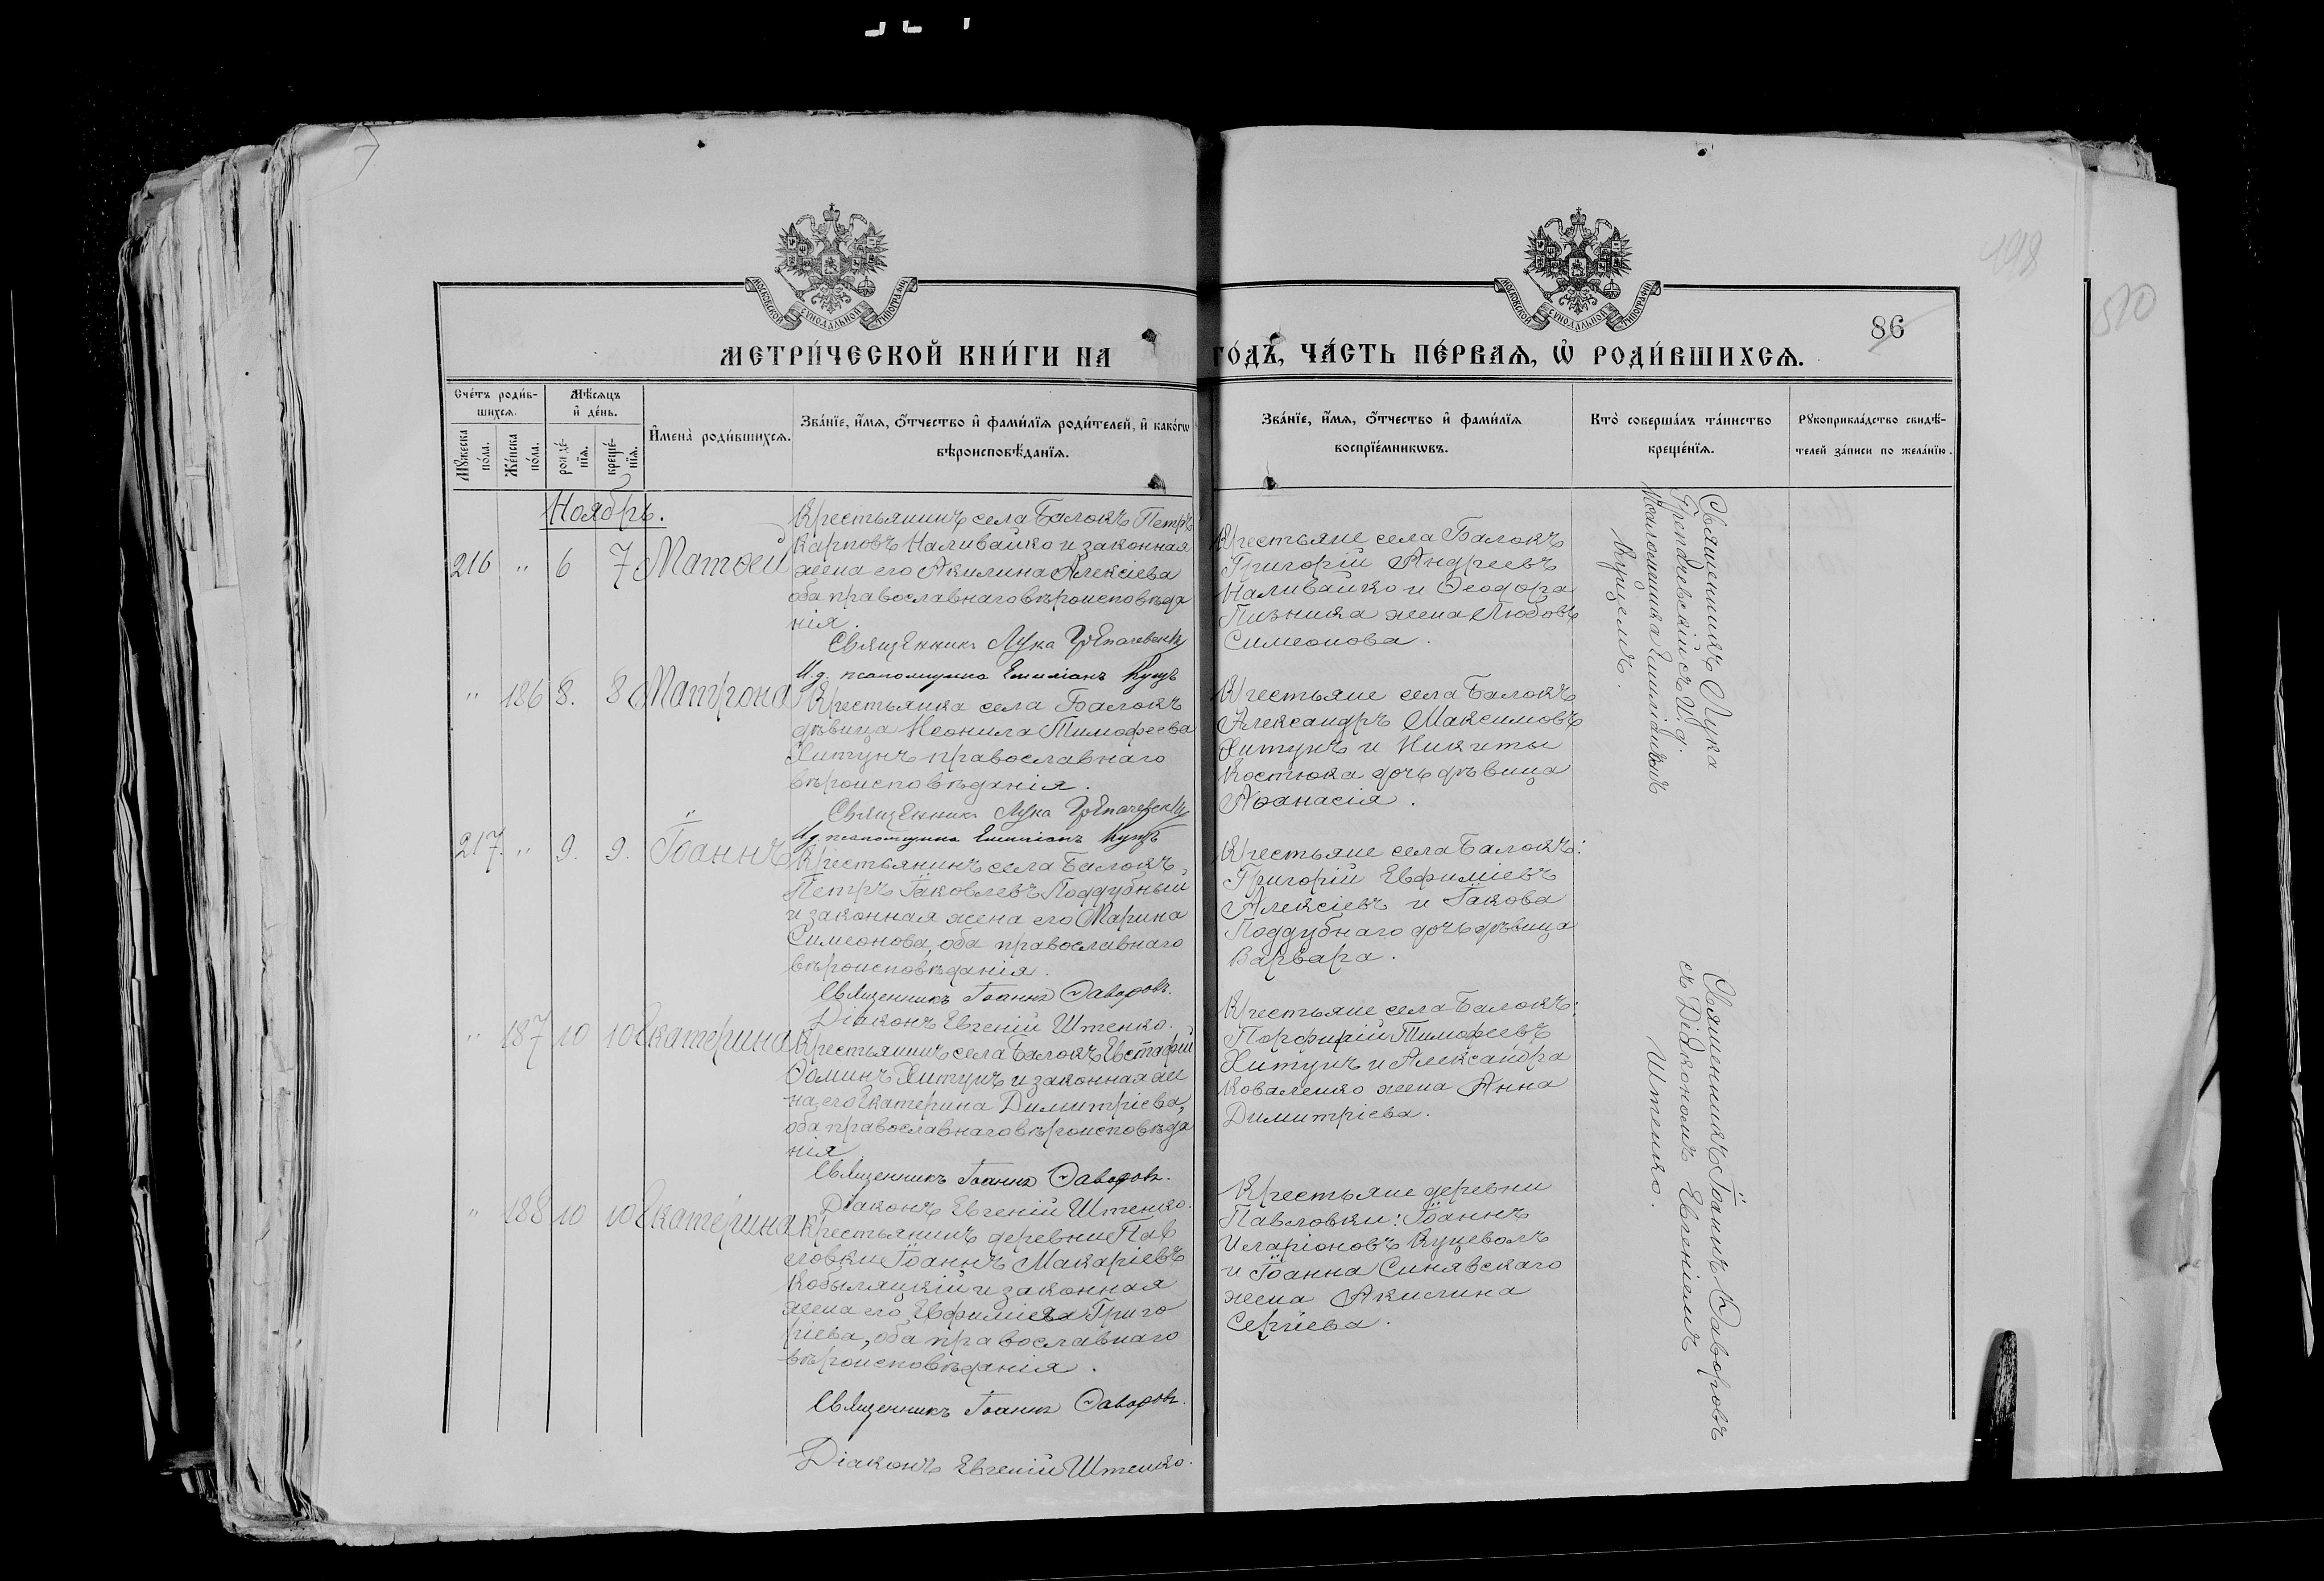 198
510
86
МОСКОВСКОЙ СѴНОДАЛЬНОЙ ТИПОГРАФІИ
МОСКОВСКОЙ СѴНОДАЛЬНОЙ ТИПОГРАФІИ
МЕТРИ́ЧЕСКОЙ КНИ́ГИ НА
ГО́ДЪ, ЧА́СТЬ ПЕ́РВАѦ, Ѡ҆ РОДИ́ВШИХСѦ.
Сче́тъ роди́в-
шихсѧ.
Мꙋ́жеска
по́ла.
Же́нска
по́ла.
Мѣ́сѧцъ
и҆ де́нь.
рожде́-
нїѧ.
креще́-
нїѧ.
И҆мена̀ роди́вшихсѧ.
Зва́нїе, и҆́мѧ, ѻ҆́тчество и҆ фами́лїѧ роди́телей, и҆ како́гѡ
вѣроисповѣ́данїѧ.
Зва́нїе, и҆́мѧ, ѻ҆́тчество и҆ фами́лїѧ
воспрїе́мникѡвъ.
Кто̀ соверша́лъ та́инство
креще́нїѧ.
Рꙋкоприкла́дство свидѣ́-
телей за́писи по жела́нїю.
Ноябрь.
216 " 6 7 Матѳей
Крестьянинъ села Балокъ Петръ
Карповъ Наливайко и законная
жена его Акилина Алексіева
оба православнаго вѣроисповѣда
нія.
Священникъ Лука Грепачевскій
И.д. псаломщика Емиліанъ Куцъ
Крестьяне села Балокъ
Григорій Андреевъ
Наливайко и Ѳеодора
Пивника жена Любовь
Симеонова.
Священникъ Лука
Грепачевскій съ И. д.
Псаломщика Емиліаномъ
Куцемъ.
" 186 8. 8 Матрона
Крестьянка села Балокъ
дѣвица Неонила Тимофеева
Хитунъ православнаго
вѣроисповѣданія.
Священникъ Лука Грепачевскій
И.д. псаломщика Емиліанъ Куцъ
Крестьяне села Балокъ
Александръ Максимовъ
Хитунъ и Никиты
Костюка дочь дѣвица
Аѳанасія.
217. " 9. 9. Іоаннъ
Крестьянинъ села Балокъ,
Петръ Іаковлевъ Поддубный
и законная жена его Марина
Симеонова, оба православнаго
вѣроисповѣданія.
Священникъ Іоаннъ Заворовъ.
Діаконъ Евгеній Штенко.
Крестьяне села Балокъ:
Григорій Евфиміевъ
Алексіевъ и Іакова
Поддубнаго дочь дѣвица
Варвара.
" 187 10 10 Екатерина
Крестьянинъ села Балокъ Евстафій
Ѳоминъ Хитунъ и законная же
на его Екатерина Димитріева,
оба православнаго вѣроисповѣда
нія
Священникъ Іоаннъ Заворовъ.
Діаконъ Евгеній Штенко.
Крестьяне села Балокъ:
Порфирій Тимофеевъ
Хитунъ и Александра
Коваленко жена Анна
Димитріева.
Священникъ Іоаннъ Заворовъ
съ Діакономъ Евгеніемъ
Штенко.
" 188 10 10 Екатерина
Крестьянинъ деревни Пав
ловки Іоаннъ Макаріевъ
Кобыляцкій и законная
жена его Евфимія Григо
ріева, оба православнаго
вѣроисповѣданія.
Священникъ Іоаннъ Заворовъ.
Діаконъ Евгеній Штенко.
Крестьяне деревни
Павловки: Іоаннъ
Иларіоновъ Куцеволъ
и Іоанна Синявскаго
жена Акилина
Сергіева.